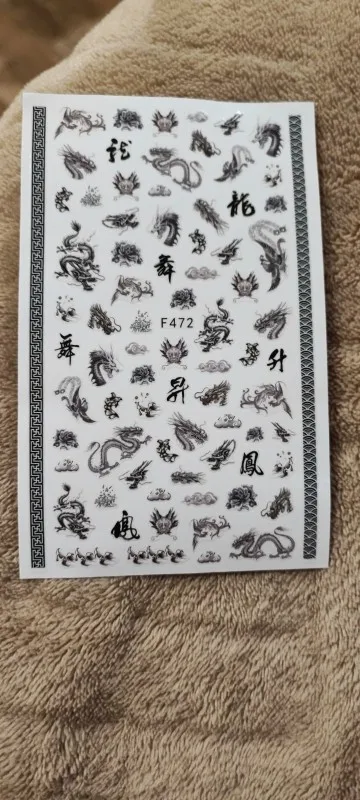 龍
龍
舞
F472
舞
升
昇
鳳
鳳